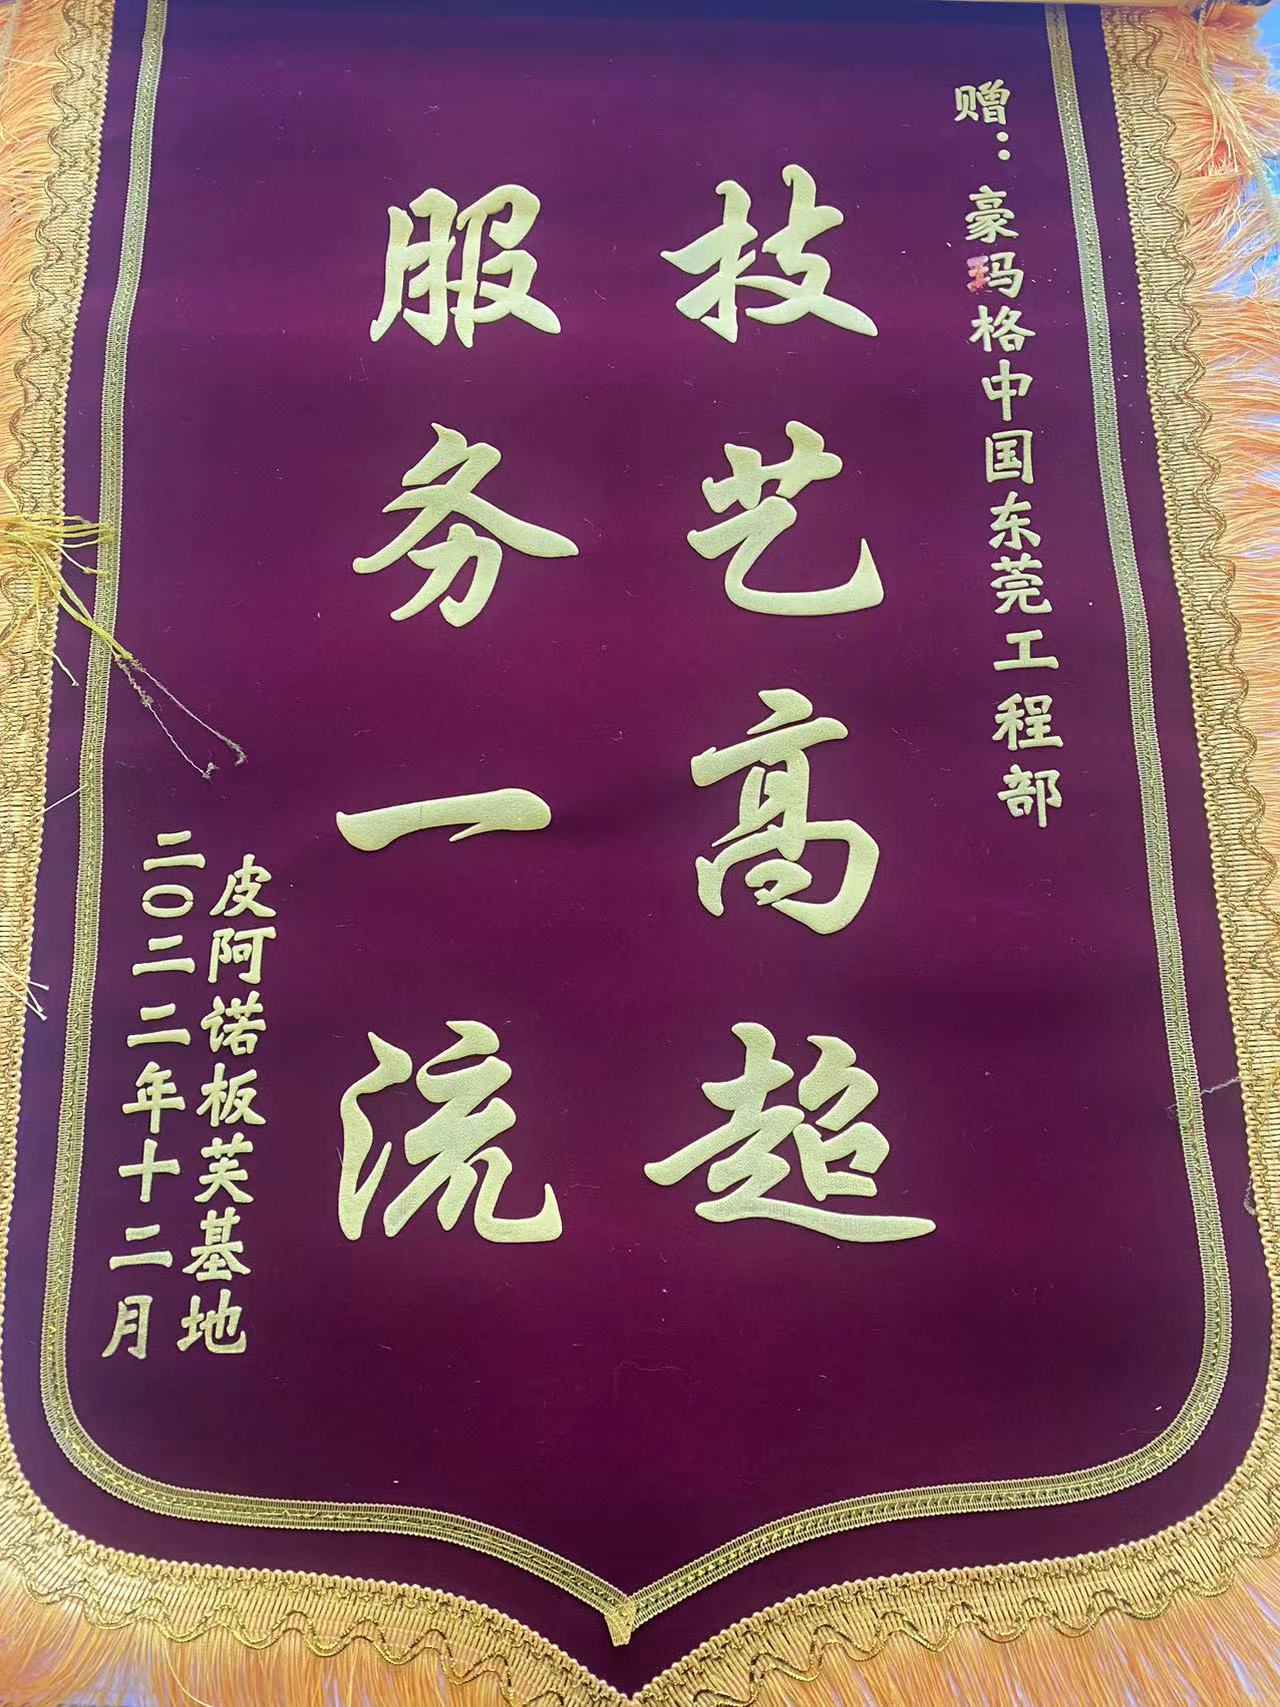 赠：豪玛格中国东莞工程部
技艺高超
服务一流
皮阿诺板芙基地
二〇二二年十二月